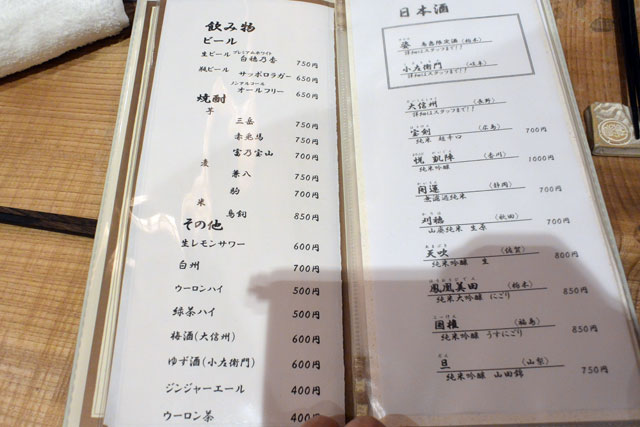 飲み物
ビール
プレミアムホワイト
生ビール 白穂乃香 750円
瓶ビール サッポロラガー 650円
ノンアルコール
オールフリー 650円
焼酎
芋
三岳 750円
赤兎馬 750円
宝乃宝山 700円
麦
兼八 750円
駒 700円
米
鳥飼 850円
その他
生レモンサワー 600円
白州 700円
ウーロンハイ 500円
緑茶ハイ 500円
梅酒(大信州) 600円
ゆず酒(小左衛門) 600円
ジンジャーエール 400円
ウーロン茶 400円
日本酒
姿 (栃木)
詳細はスタッフまで!!
小左衛門 (岐阜)
詳細はスタッフまで!!
大信州 (長野)
詳細はスタッフまで!!
宝剣 (広島)
純米 超辛口 700円
悦凱陣 (香川)
純米吟醸 1000円
開運 (静岡)
無濾過純米 700円
刈穂 (秋田)
山廃純米 生原 700円
天吹 (佐賀)
純米吟醸 生 800円
鳳凰美田 (栃木)
純米大吟醸 にごり 850円
国権 (福島)
純米吟醸 うすにごり 850円
旦 (山梨)
純米吟醸 山田錦 750円